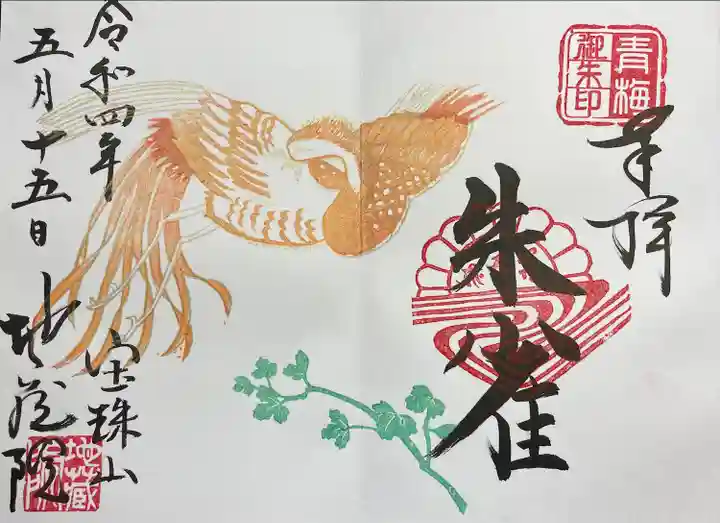 青梅
御朱印
奉拝
朱雀
令和四年
五月十五日
宝珠山
地蔵院
地蔵
院印